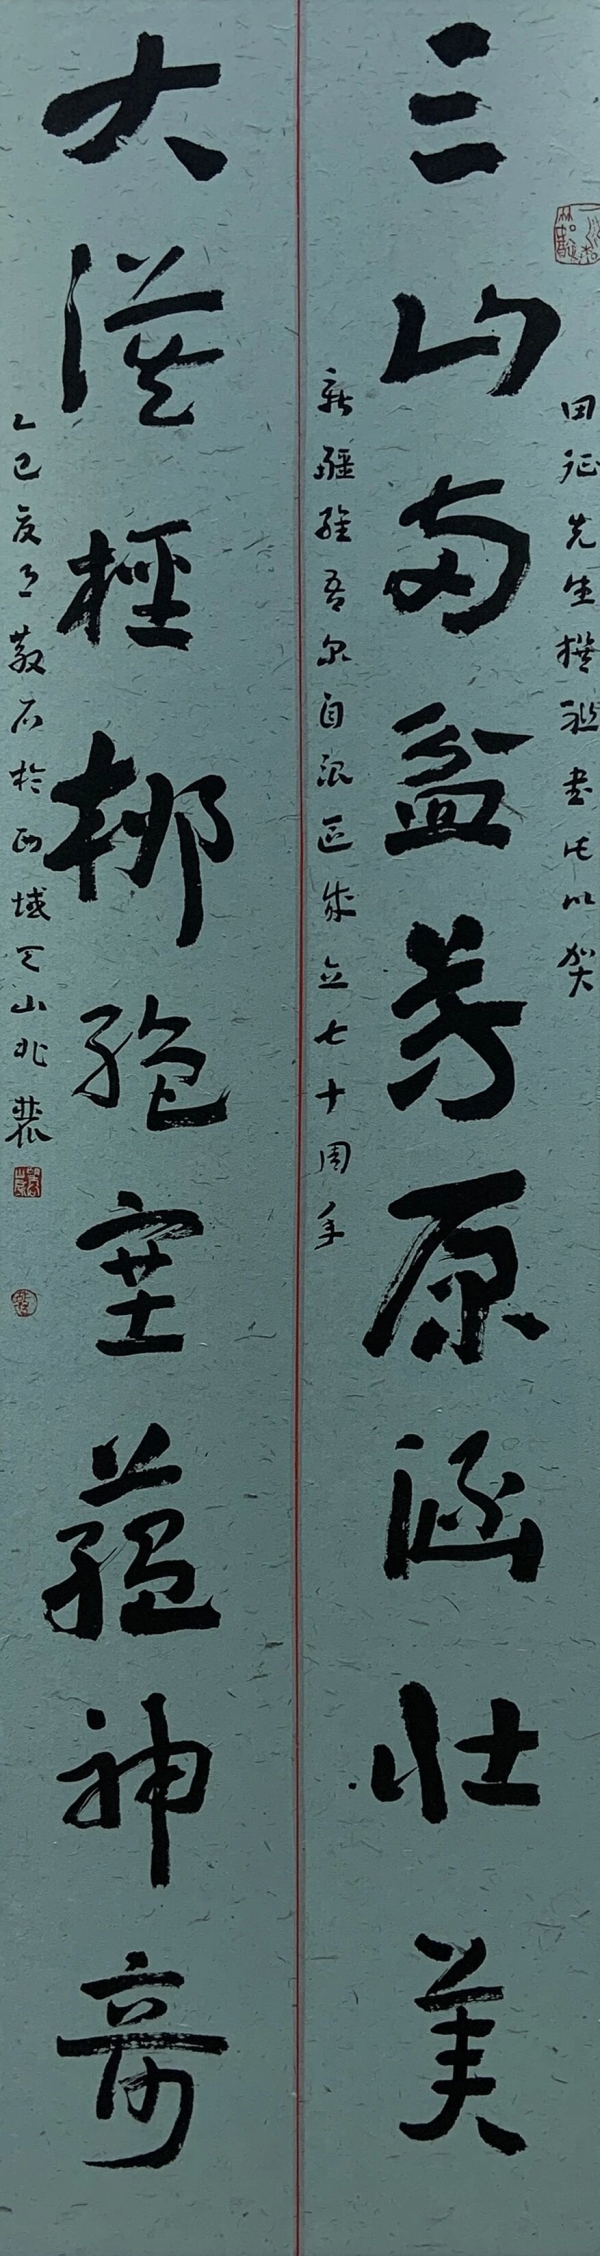 三山两盆芳原涵壮美
大漠柽柳绝塞蕴神奇
田征先生撰联书此以贺
新疆维吾尔自治区成立七十周年
乙巳夏月石於西域天山北麓